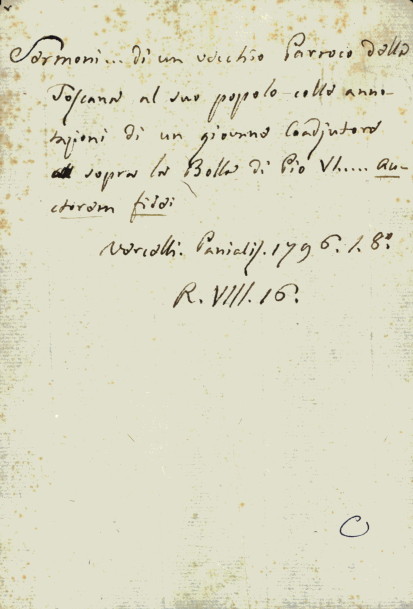 Sermoni... di un vecchio Parroco della
Toscana al suo popolo colle anno-
tazioni di un giovane Coadjutore
sopra la Bolla di Pio VI..... Au-
ctorem fidei
Vercelli. Panialis. 1796. 1. 8.º
R. VIII. 16.
C